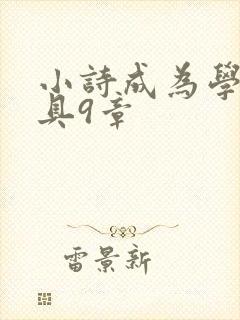 小詩成為學
具9章
雷景新